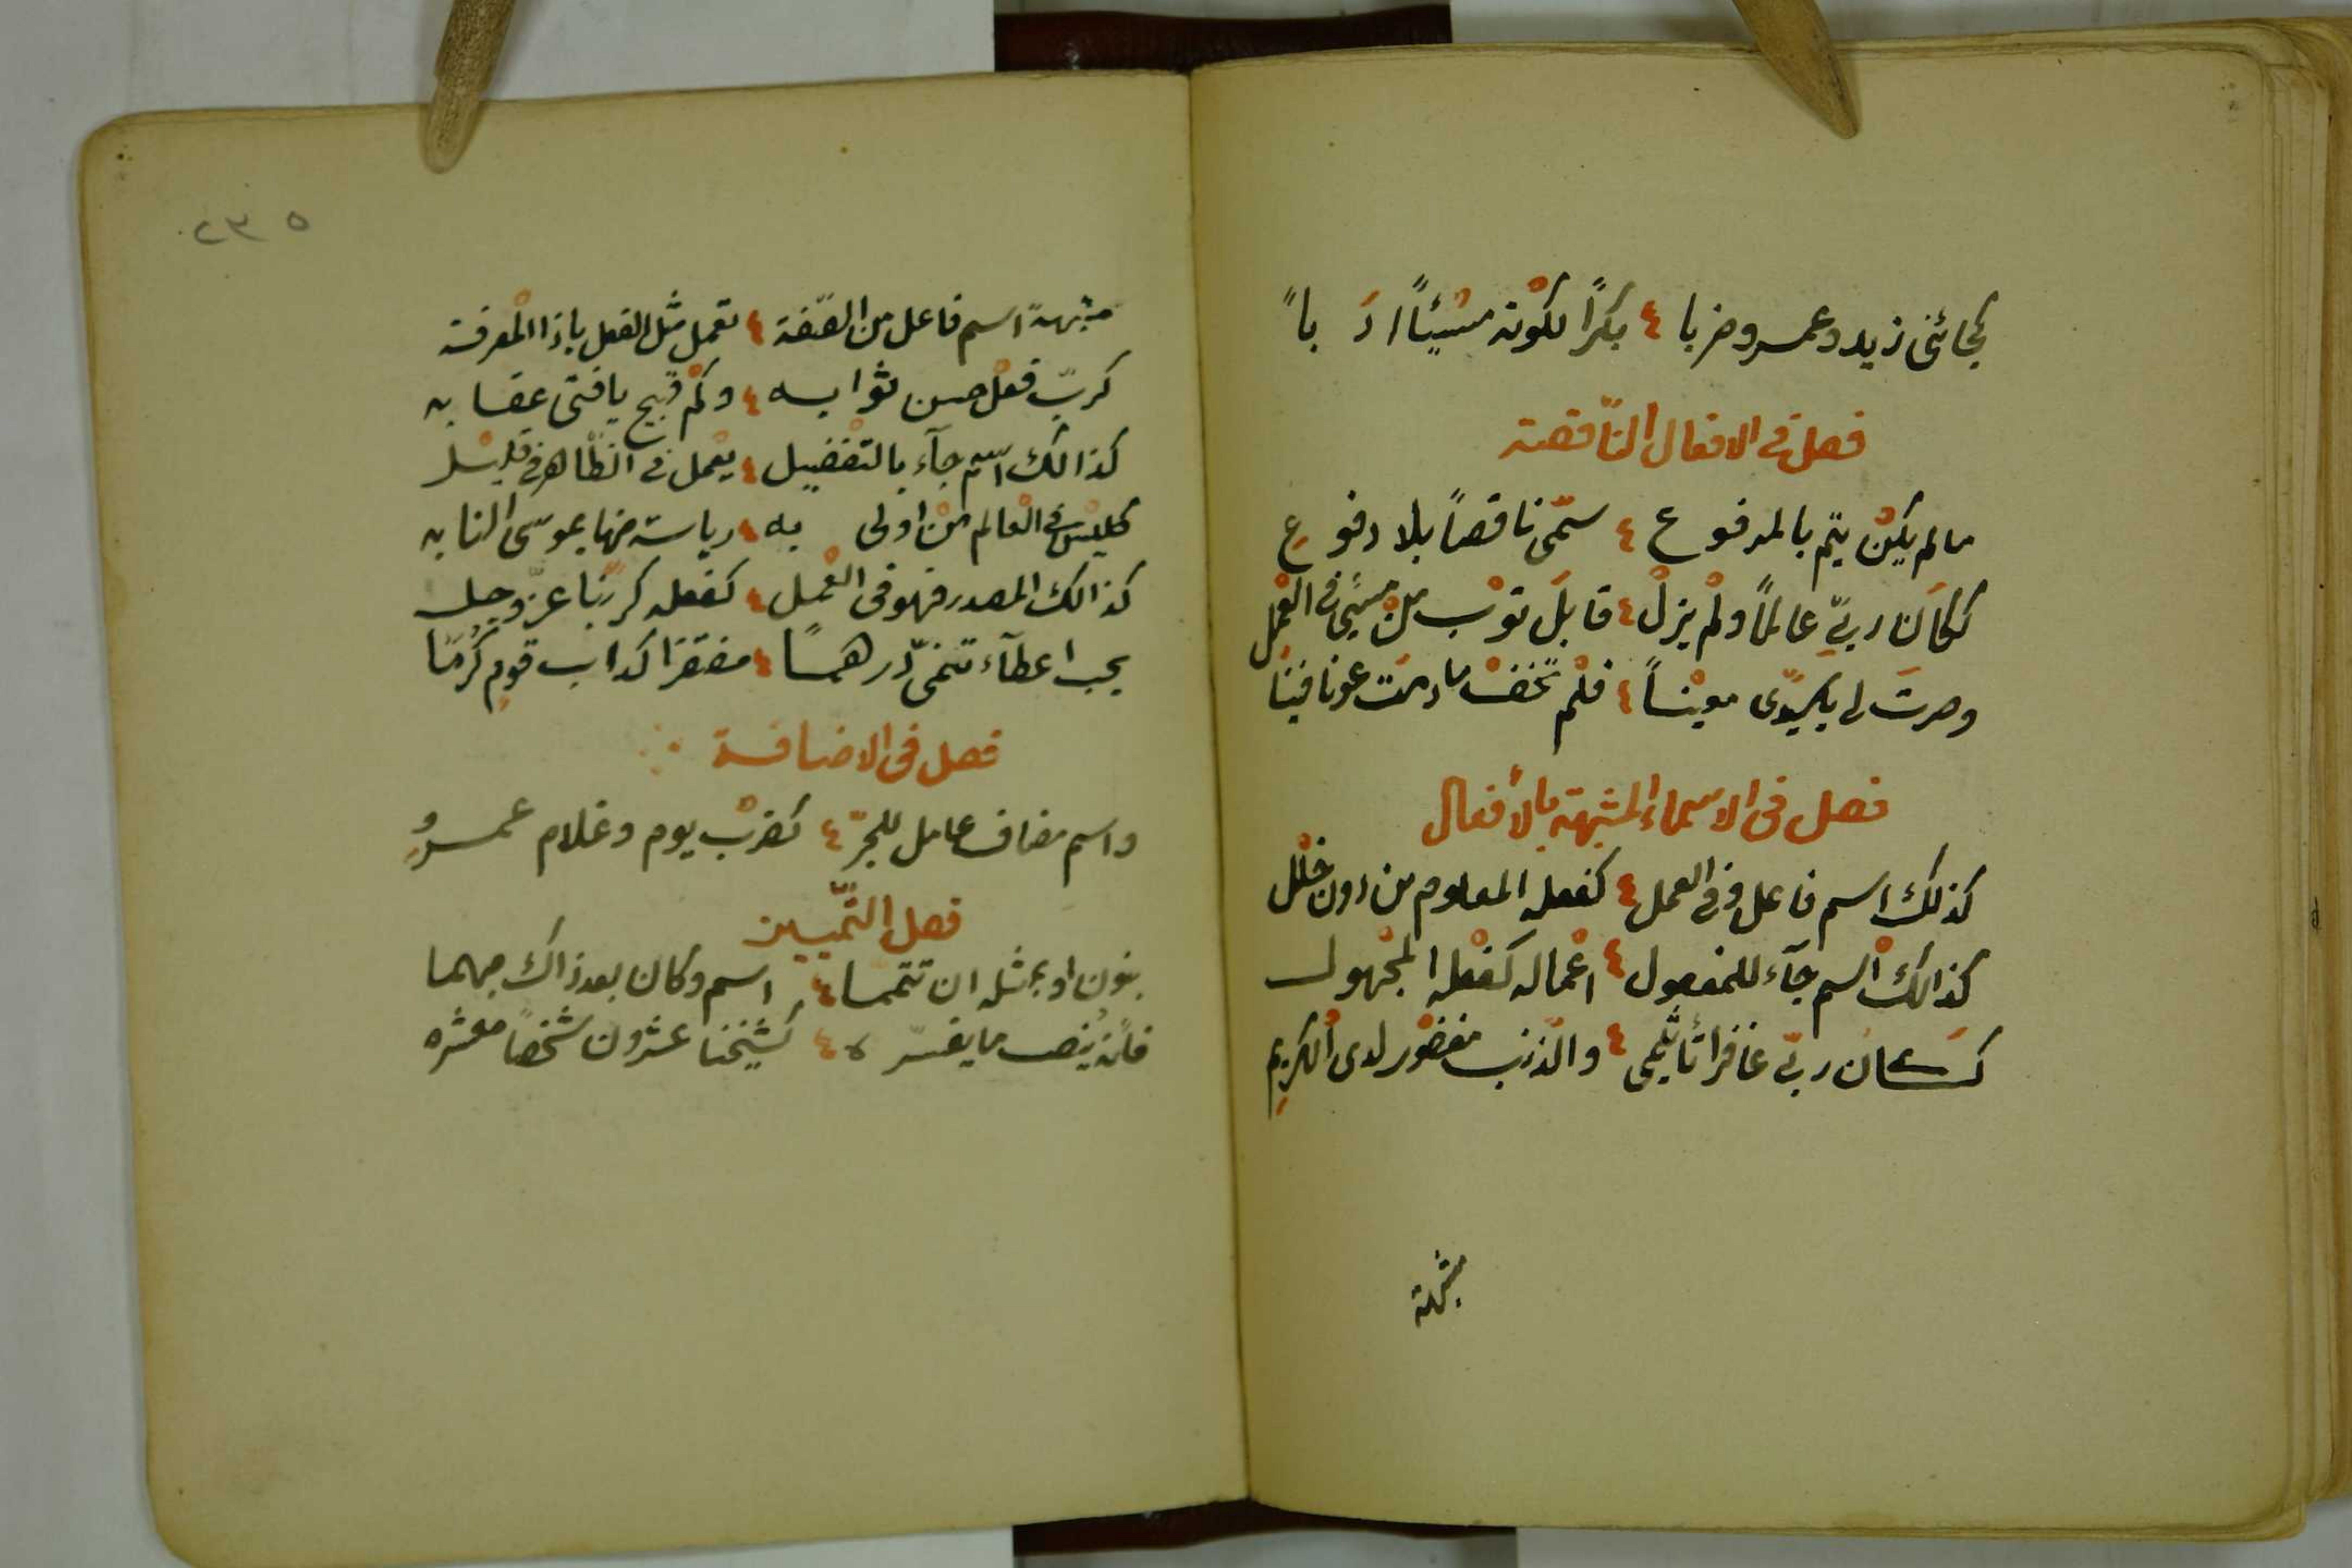 كجائنى زيد وعمرو ضربا ٤ بكرًا لكونه مسيئًا ادَباً
فصل فى الافعال النّاقصة
ما لم يكن يتم بالمرفوع ٤ سمّى ناقصاً بلا دفوع
ككان ربّى عالمًا ولم يزلْ ٤ قابلَ توْب منْ مسيئ فى العمل
وصرتَ لى يا سيّدى معيناً ٤ فلم نخفْ ما دمت عونا فينا
فصل فى الاسماء المشبهة بالأفعال
كذلك اسم فاعل فى العمل ٤ كفعله المعلوم من دون خلل
كذالك اسم جآء للمفعول ٤ اعماله كفعله المجهول
كـكان ربّى غافرا تأثيمى ٤ والذنب مغفور لدى الكريم
مشبهة
٢٣٥
مشبهةً اسم فاعل من الصّفة ٤ تعمل مثل الفعل يا ذا المعرفة
كربّ فعل حسن ثوابه ٤ وكم قبيح يا فتى عقابه
كذالك اسم جآء بالتفضيل ٤ يعمل فى الظّاهر فى قليل
كليس فى العالم منْ اولى به ٤ رياسة منها بموسى النابه
كذالك المصدر فهو فى العمل ٤ كفعله كربّنا عزّ وجل
يجب اعطآء تنمّى درهما ٤ مفتقرا كداب قوم كُرمَا
فصل فى الاضافة
واسم مضاف عامل للجرّ ٤ كضرْب يوم وغلام عمرو
فصل التّمييز
بنون او بمثله ان تتمما ٤ اسم وكان بعد ذاك مبهما
فانه ينصب ما يفسّره ٤ كشيخنا عشرون شخصًا معشره